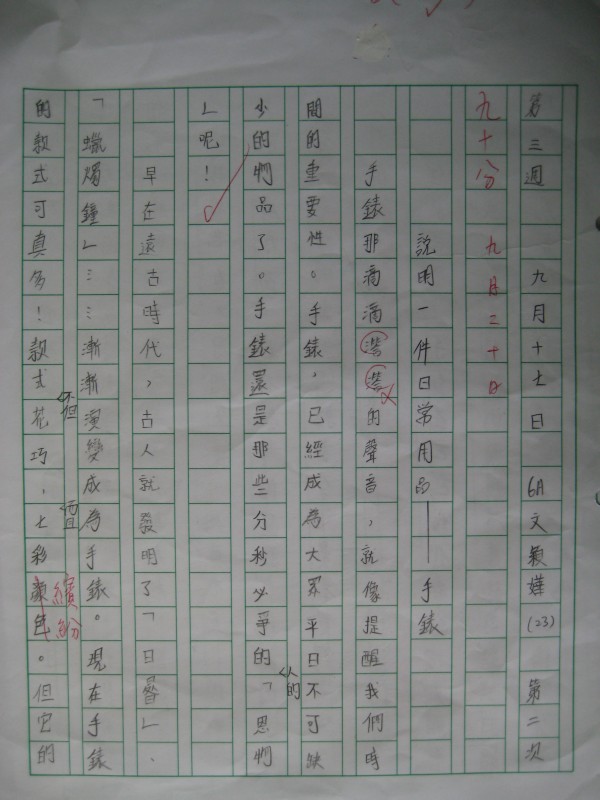 第三週 九月十七日 6A 文穎 (23) 第二次
九十分 九月二十日
說明一件日常用品——手錶
手錶那滴滴溚溚的聲音,就像提醒我們時
間的重要性。手錶,已經成為大眾平日不可缺
人的
少的物品了。手錶還是那些分秒必爭的「恩物
」呢!
早在遠古時代,古人就發明了「日晷」、
「蠟燭鐘」……漸漸演變成為手錶。現在手錶
不但
而且
繽紛
的款式可真多!款式花巧,七彩顏色。但它的